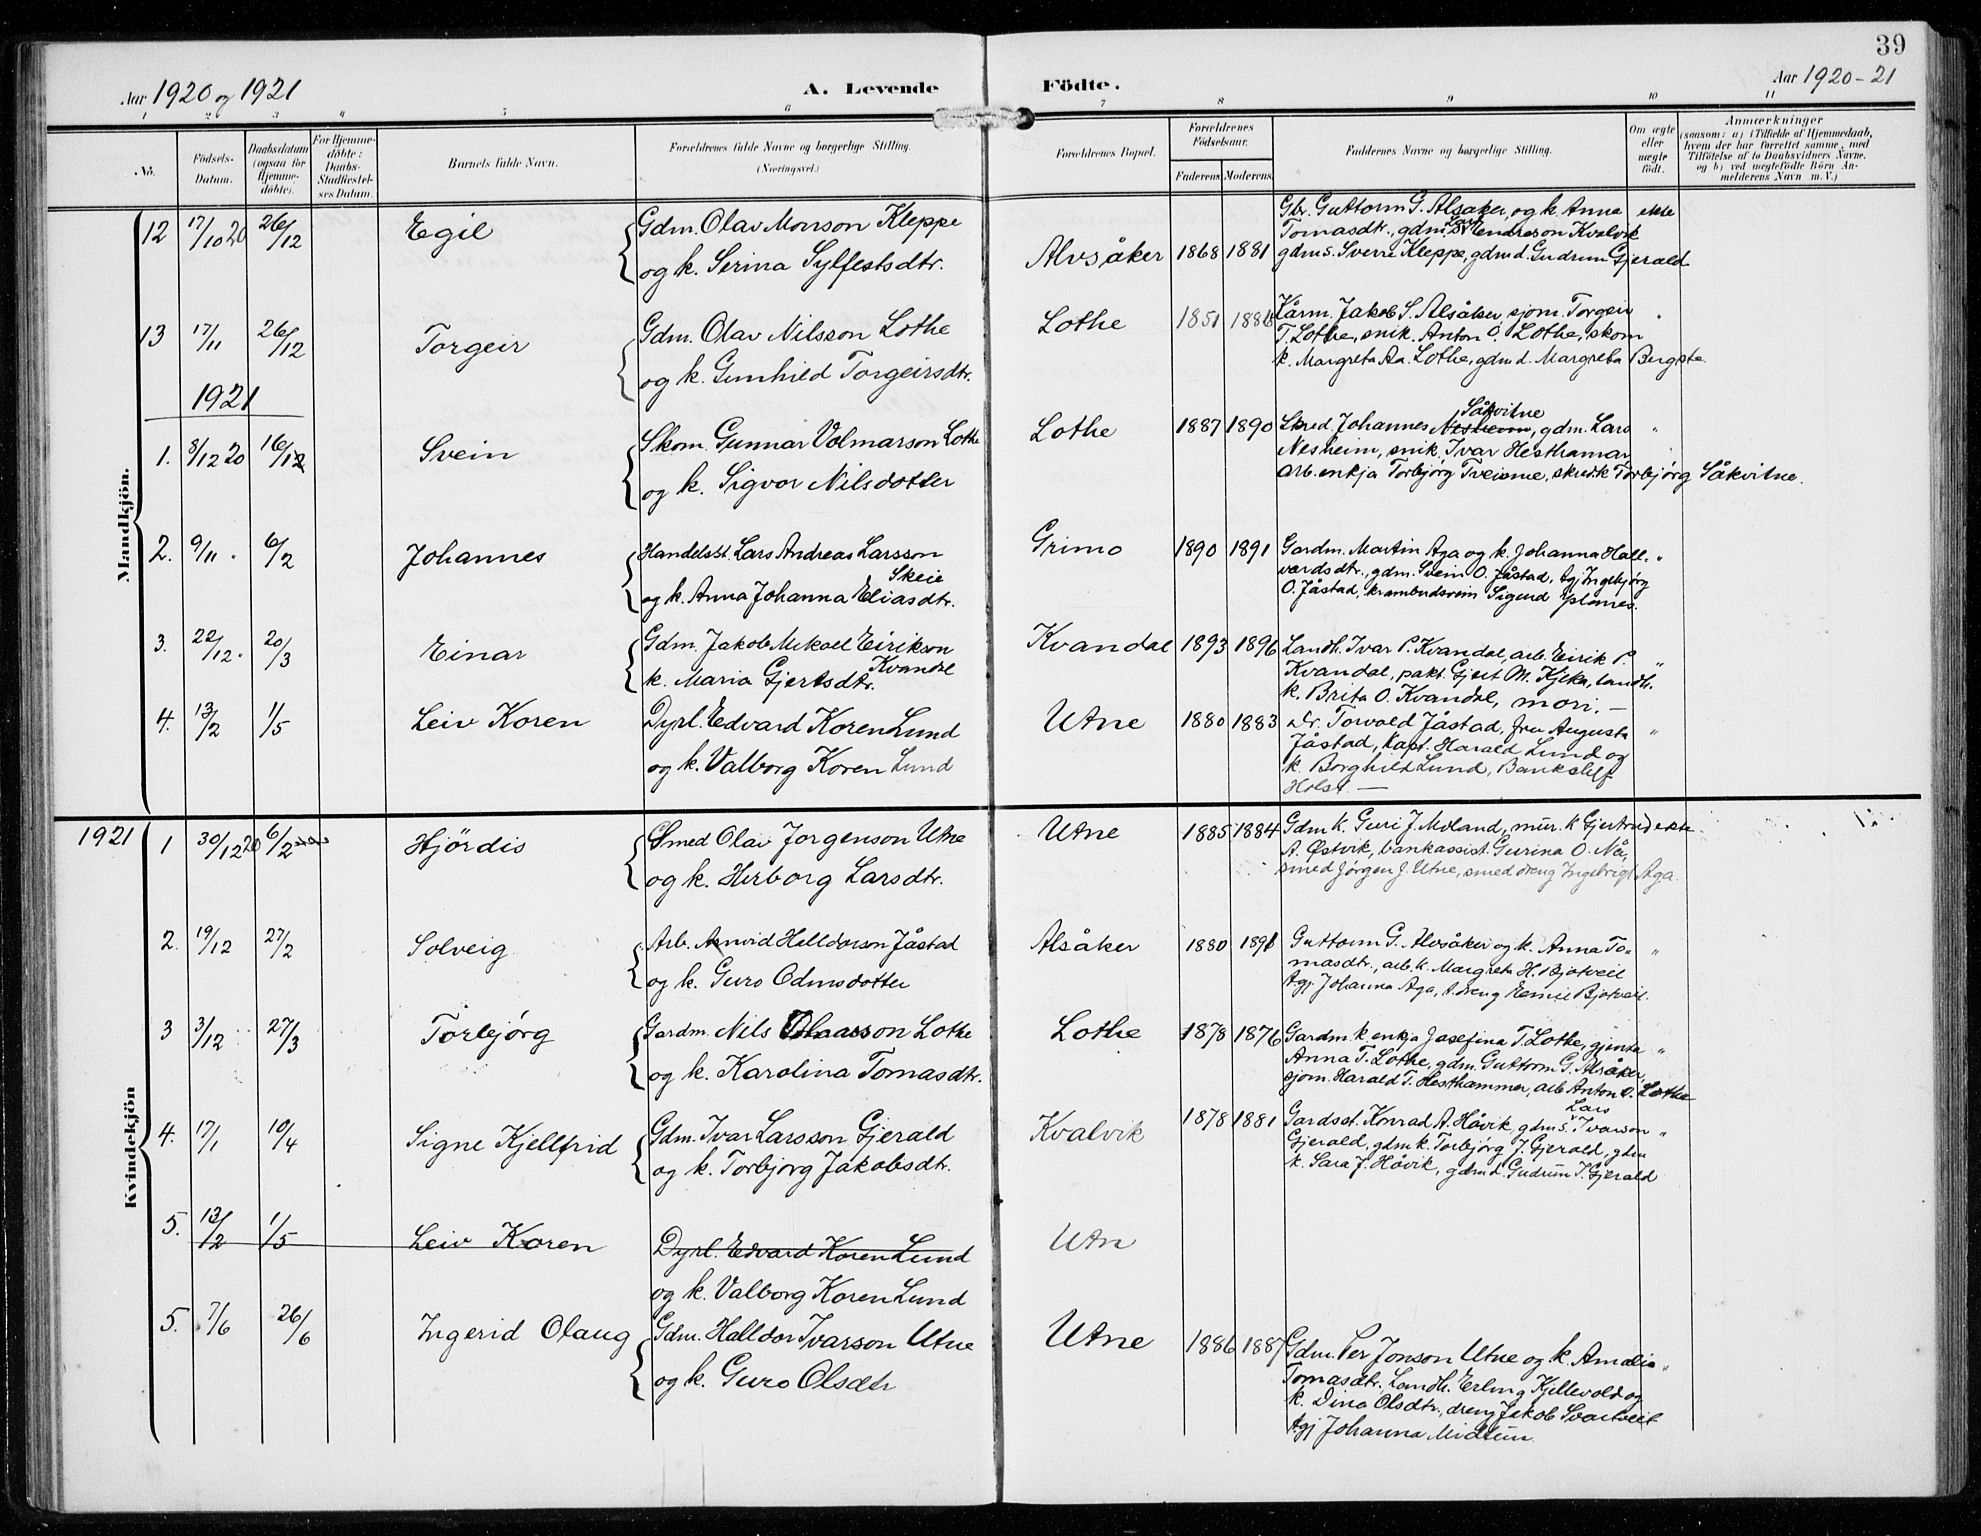 39
Aar 1920 og 1921
A. Levende
Födte.
Aar 1920-21
1 2 3 4 5 6 7 8 9 10 11
No.
Födsels-Datum.
Daabsdatum (ogsaa for Hjemme-döbte).
For Hjemme-döbte: Daabs-Stadfæstel-ses Datum.
Barnets fulde Navn.
Forældrenes fulde Navne og borgerlige Stilling.
(Næringsvei.)
Forældrenes Bopæl.
Forældrenes Födselsaar.
Faderens. Moderens.
Faddernes Navne og borgerlige Stilling.
Om ægte eller uægte födt.
Anmærkninger
(saasom: a) i Tilfælde af Hjemmedaab,
hvem der har forrettet samme, med
Tilföielse af to Daabsvidners Navne,
og b) ved uægtefödte Börn An-
melderens Navn m. V.)
Mandkjön.
12 17/10 20 26/12 Egil
Gdm. Olav Monson Kleppe
og k. Serina Sylfestsdtr.
Alvsåker 1868 1881
Gbr. Guttorm G. Alsaker, og k. Anna ekte
Tomasdtr., gdm. Lars Hendreson Kvalvik
gdms. Sverre Kleppe, gdmd. Gudrun Gjerald
13 17/11 26/12 Torgeir
Gdm. Olav Nilsson Lothe
og k. Gunhild Torgeirsdtr.
Lothe 1851 1886
Kårm. Jakob S. Alsåker, sjom. Torgeir "
T. Lothe, snik. Anton O. Lothe, skom
k. Margreta Aa. Lothe, gdmd. Margreta
1921
1. 8/12 20 16/1 Svein
Skom. Gunnar Volmarson Lothe
og k. Sigvor Nilsdotter
Lothe 1887 1890
Såkvitne
Skred. Johannes Nesheim, gdm. Lars "
Nesheim, snik. Ivar Hesthamar
arb. enkja Torbjørg Tveisme, skredk Torbjørg Såkvitne.
2. 9/11 " 6/2 Johannes
Handelsst. Lars Andreas Larsson
Skeie
og k. Anna Johanna Eliasdtr.
Grimo 1890 1891
Gardm. Martin Aga og k. Johanna Hall- "
vardsdtr., gdm. Svein O. Jåstad, tgj Ingebjørg
O. Jåstad, krambudsvein Sigurd
3. 22/12 " 20/3 Einar
Gdm. Jakob Mikael Eirikson
Kvandal
k. Maria Gjertsdtr.
Kvandal 1893 1896
Landh. Ivar P. Kvandal, arb. Eirik P. "
Kvandal, pakt. Gjert M. Kjeka, landh.
k. Brita O. Kvandal, mori. —
4. 13/2 1/5 Leiv Koren
Dyrl. Edvard Koren Lund
og k. Valborg Koren Lund
Utne 1880 1883
Dr. Torvald Jåstad, fru Augusta "
Jåstad, Kapt. Harald Lund og
k. Borghild Lund, Bankchef
Holst. —
Kvindekjön
1921
1 30/12 20 6/2 Hjördis
Smed Olav Jorgenson Utne
og k. Herborg Larsdtr.
Utne 1885 1884
Gdm k. Guri J. Moland, mur. k Gjertrud ekte
A. Østvik, bankassist. Gurina O. Nå,
smed Jørgen J. Utne, smeddreng Ingebrigt Aga.
2. 19/12 27/2 Solveig
Arb. Arnvid Halldorson Jåstad
og k. Guro Odmsdotter
Alsåker 1880 1891
Guttorm G. Alvsåker og k. Anna To- "
masdtr., arb. k. Margreta H. Bjotveit
tgj. Johanna Aga, t. dreng Bjotveit.
3 3/12 27/3 Torbjørg
Gardm. Nils Olaasson Lothe
og k. Karolina Tomasdtr.
Lothe 1878 1876
Gardm. k. enkja Josefina T. Lothe, gjenta "
Anna T. Lothe, gdm. Guttorm G. Alsåker,
sjom. Harald T. Hesthammer, arb Anton O. Lothe
4. 17/1 10/4 Signe Kjellfrid
Gdm. Ivar Larsson Gjerald
og k. Torbjørg Jakobsdtr.
Kvalvik 1878 1881
Lars
Gardsst. Konrad A. Håvik, gdms. Ivarson "
Gjerald, gdmk. Torbjørg J. Gjerald, gdm
k. Sara J. Håvik, gdmd. Gudrun I. Gjerald
5. 13/2 1/5 Leiv Koren
Dyrl. Edvard Koren Lund
og k. Valborg Koren Lund
Utn
5. 7/6 26/6 Ingerid Olaug
Gdm. Halldor Ivarson Utne
og k. Guro Olsdtr
Utne 1886 1887
Gdm. Per Jonson Utne og k. Amalia "
Tomasdtr. Landh. Erling Kjellevold og
k. Dina Olsdtr., dreng Jakob Svartveit
tgj Johanna Midtun.